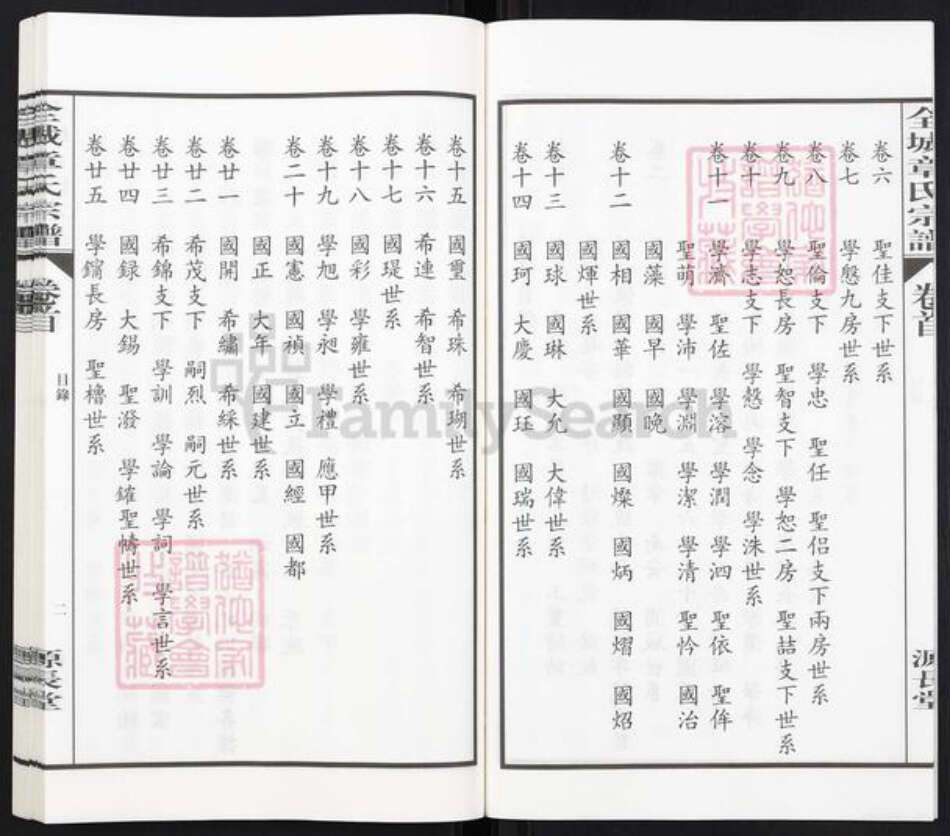 全城章氏宗譜
卷首
源長堂
卷六 聖佳支下世系
卷七 學慇九房世系
卷八 聖倫支下 學忠 聖任 聖侶支下兩房世系
卷九 學恕長房 聖智支下 學恕二房 聖喆支下世系
卷十 學志支下 學愨 學念 學洙世系
卷十一 學濟 聖佐 學溶 學潤 學泗 聖依 聖侔
聖萌 學沛 學淵 學潔 學清 聖忴 國治
國藻 國早 國晚
卷十二 國相 國華 國顯 國燦 國炳 國熠 國炤
國煇世系
卷十三 國球 國琳 大允 大偉世系
卷十四 國珂 大慶 國珏 國瑞世系
卷十五 國璽 希珠 希瑚世系
卷十六 希連 希智世系
卷十七 國瑅世系
卷十八 國彩 學雍世系
卷十九 學旭 學昶 學禮 應甲世系
卷二十 國憲 國禎 國立 國經 國都
國正 大年 國建世系
卷廿一 國開 希繡 希綵世系
卷廿二 希茂支下 嗣烈 嗣元世系
卷廿三 希錦支下 學訓 學論 學詞 學言世系
卷廿四 國録 大錫 聖潑 學鏙 聖幬世系
卷廿五 學鑐長房 聖櫓世系
全城章氏宗譜
卷首
目錄
二
源長堂
FamilySearch